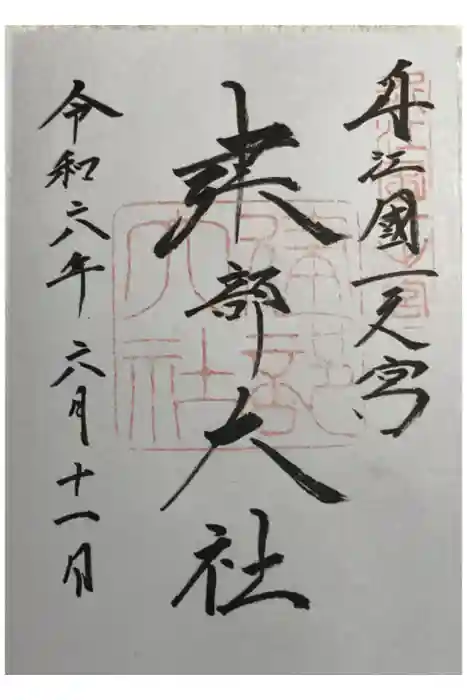 近江國一之宮
建部大社
令和六年六月十一日
建部
大社